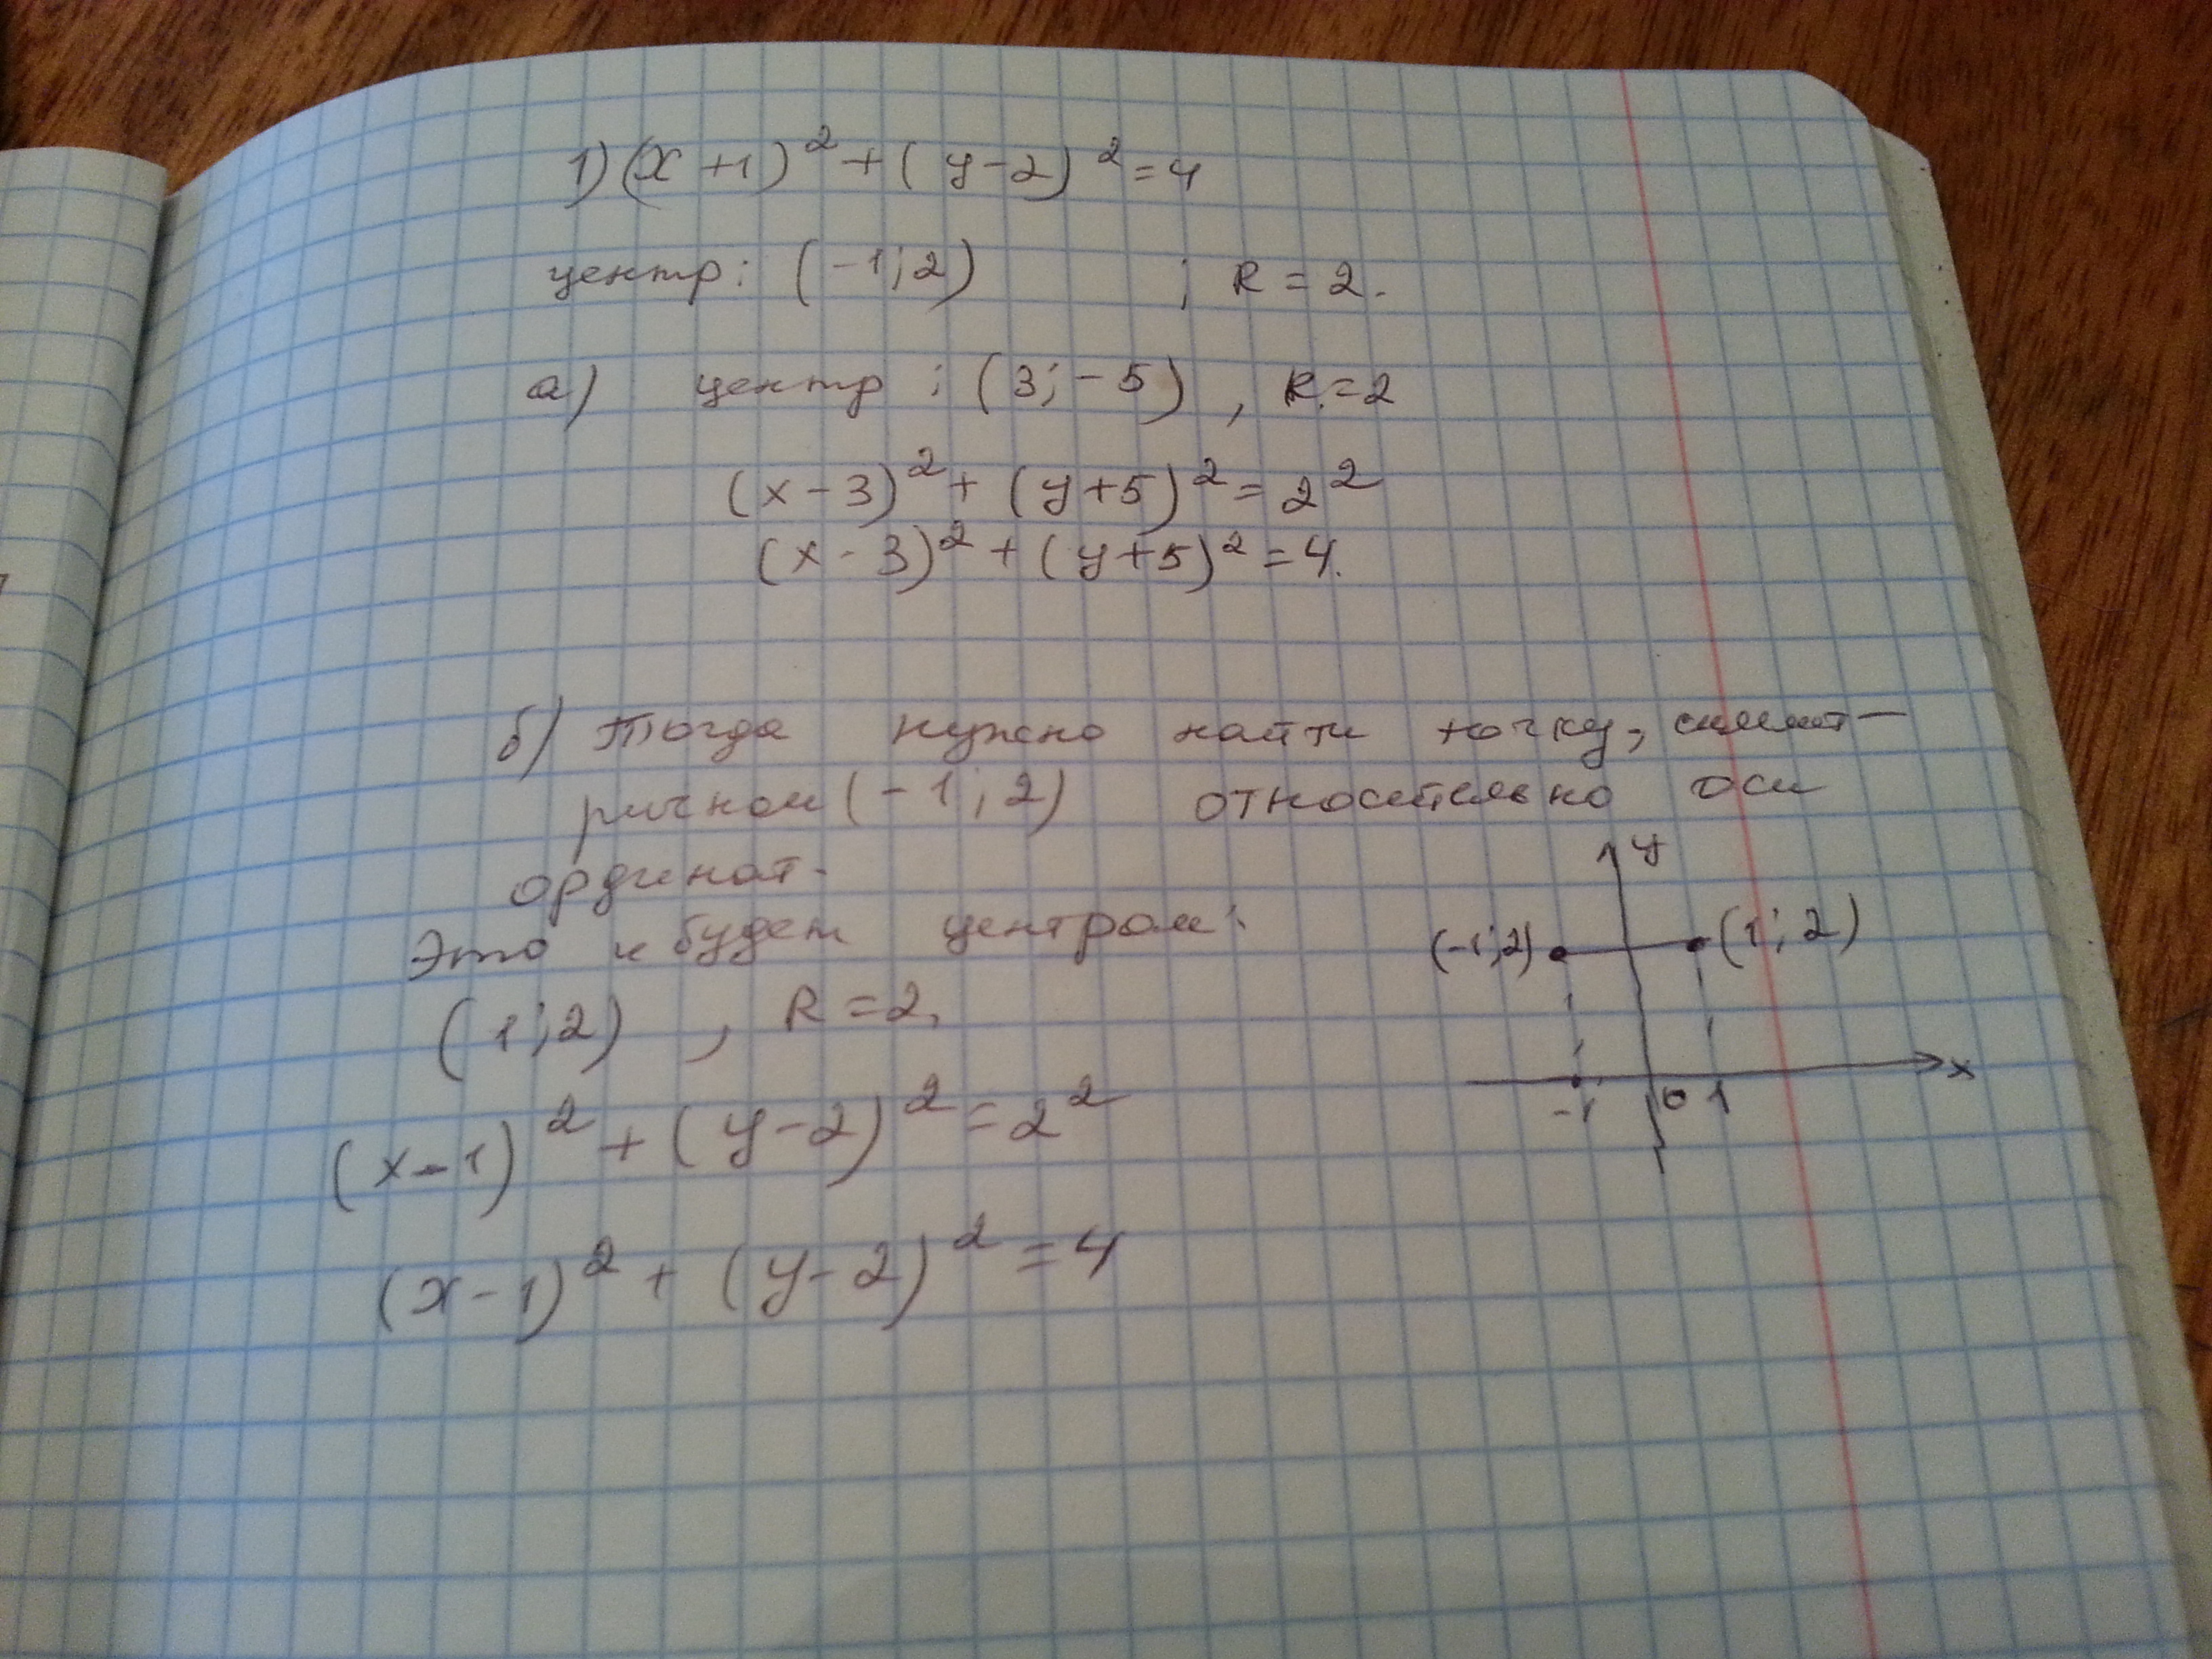 1) (x+1)² + (y-2)² = 4
центр: (-1; 2) ; R = 2.
а) центр : (3; -5) , R = 2
(x-3)² + (y+5)² = 2²
(x-3)² + (y+5)² = 4.
б) Тогда нужно найти точку, симмет-
ричном (-1; 2) относительно оси
ординат.
Это и будет центром:
(1; 2) , R = 2,
(x-1)² + (y-2)² = 2²
(x-1)² + (y-2)² = 4
y
(-1; 2) (1; 2)
x
-1 0 1